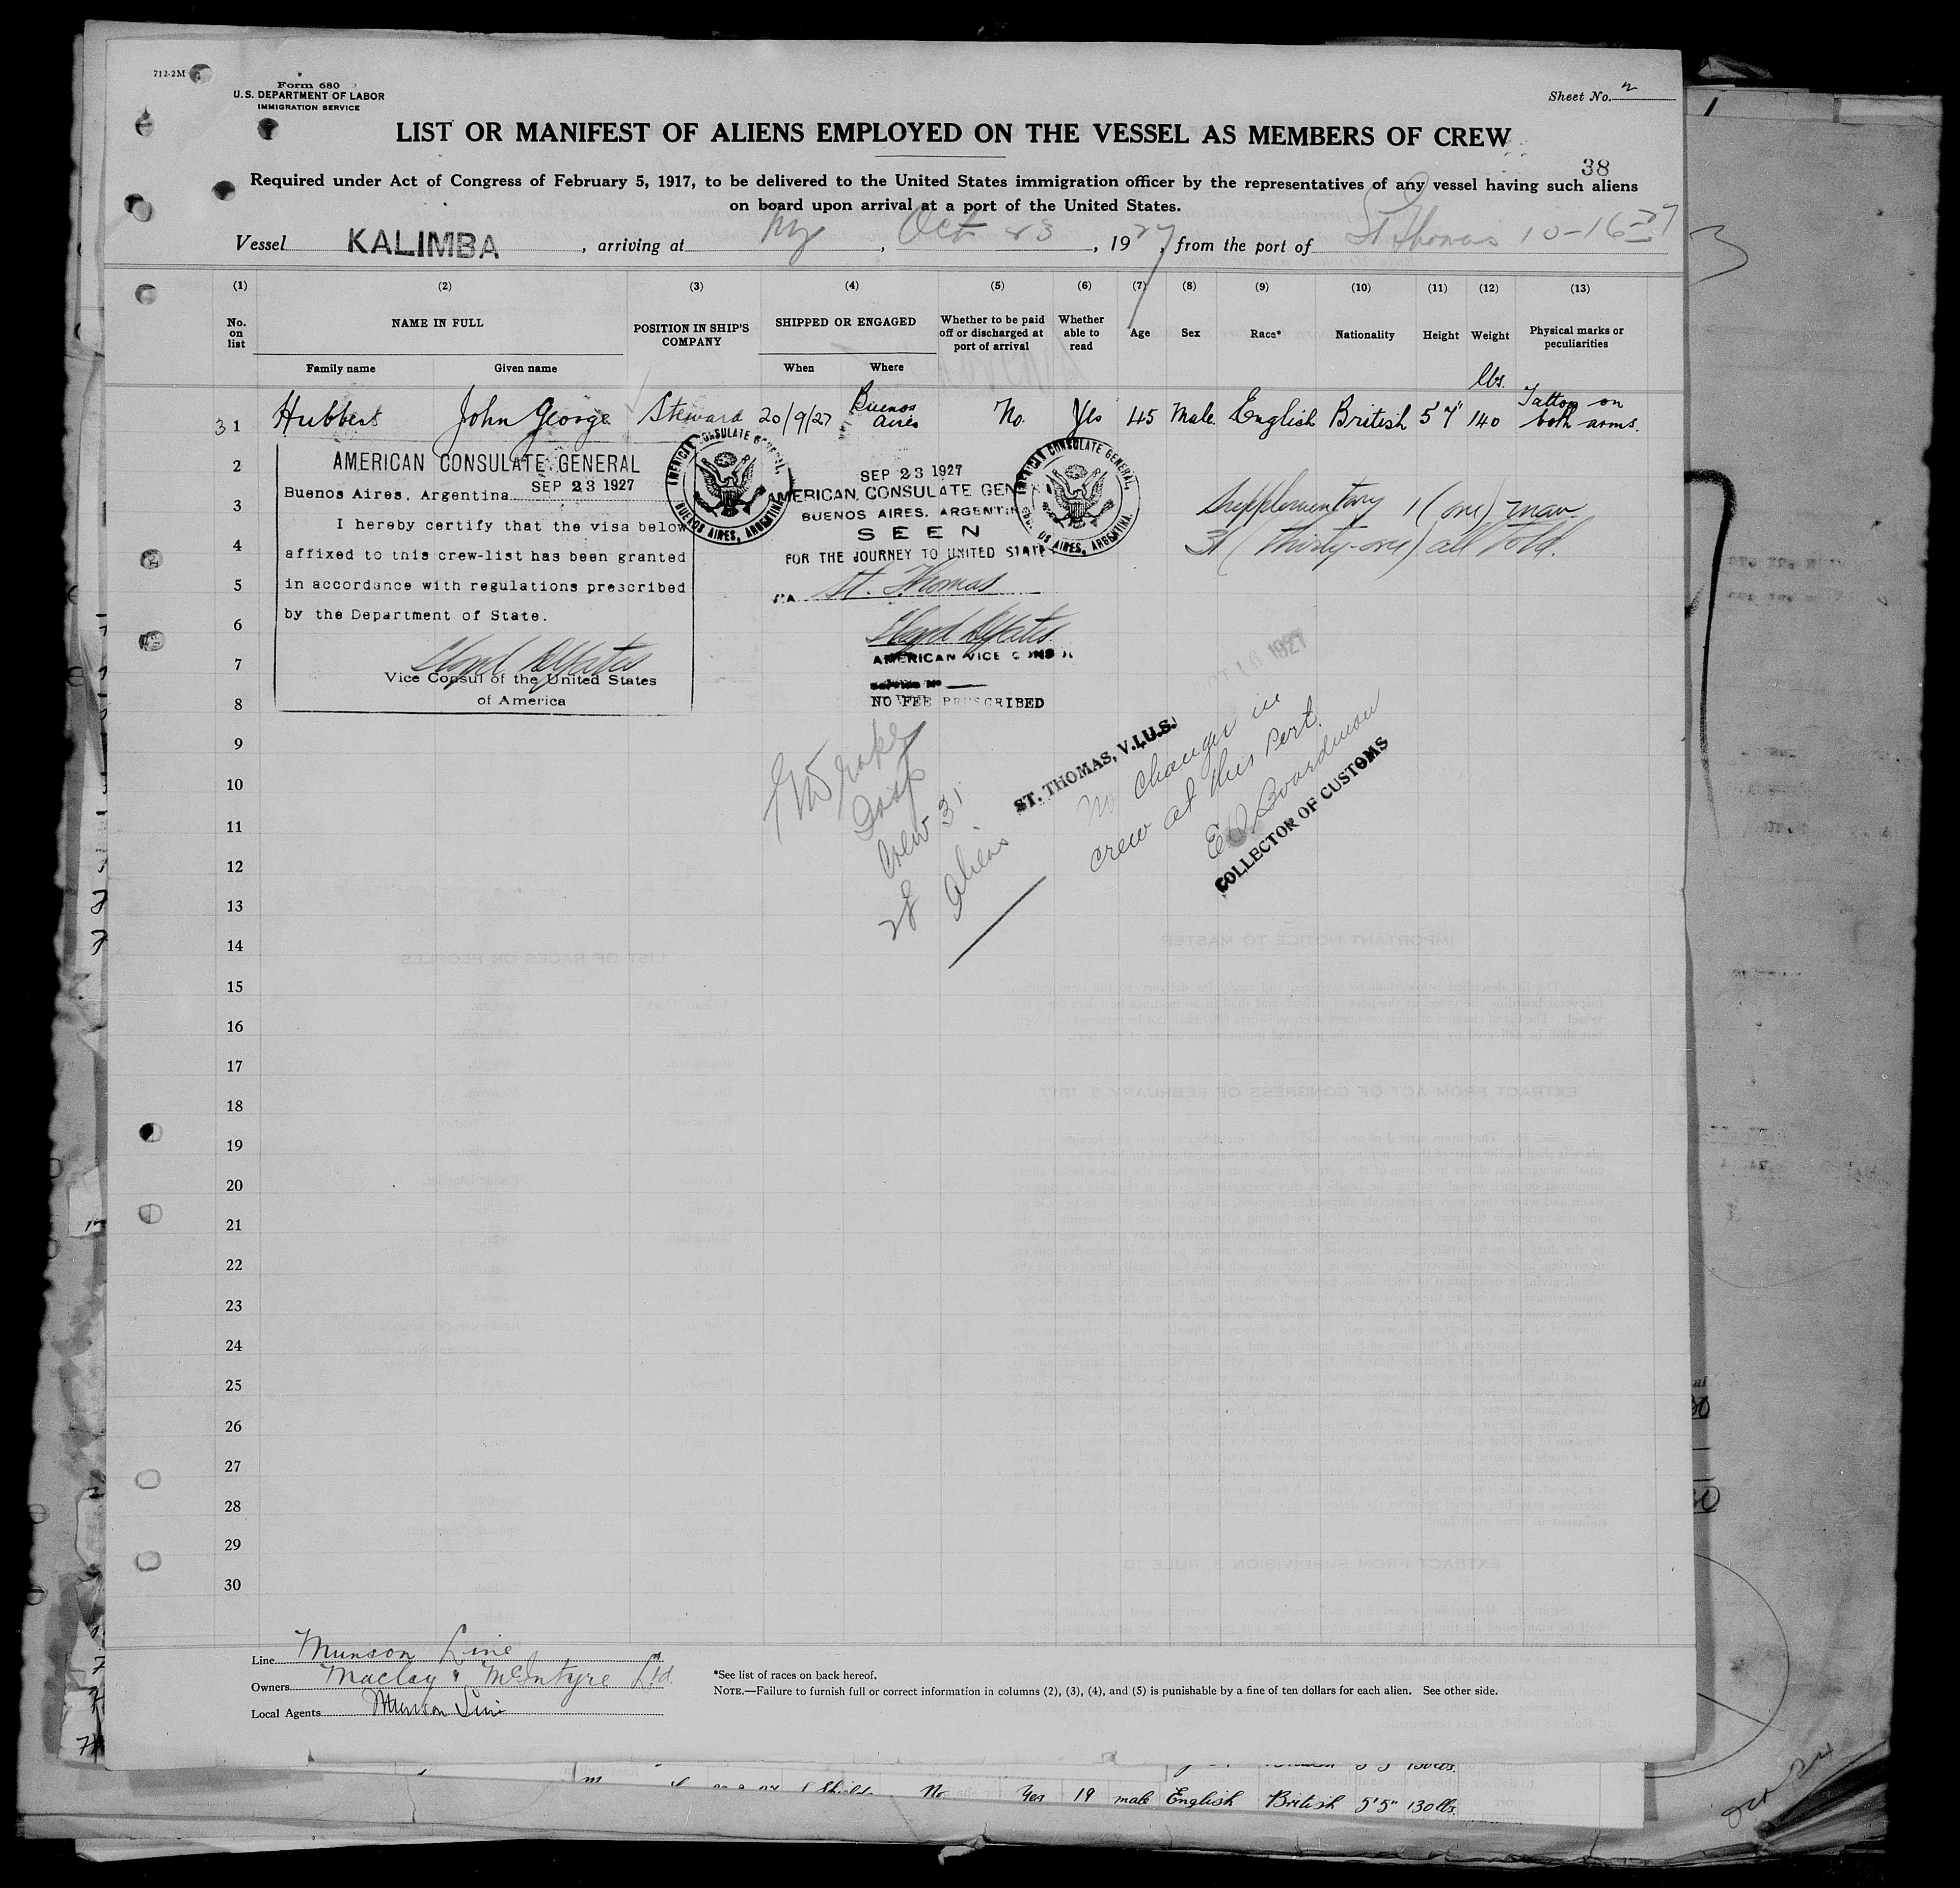 712-2M
Form 680
U.S. DEPARTMENT OF LABOR
IMMIGRATION SERVICE
Sheet No. 2
LIST OR MANIFEST OF ALIENS EMPLOYED ON THE VESSEL AS MEMBERS OF CREW
38
Required under Act of Congress of February 5, 1917, to be delivered to the United States immigration officer by the representatives of any vessel having such aliens
on board upon arrival at a port of the United States.
Vessel KALIMBA, arriving at NY, Oct 23, 1927, from the port of St Thomas 10-16-27
(1) (2) (3) (4) (5) (6) (7) (8) (9) (10) (11) (12) (13)
No. on list NAME IN FULL POSITION IN SHIP'S COMPANY SHIPPED OR ENGAGED Whether to be paid off or discharged at port of arrival Whether able to read Age Sex Race* Nationality Height Weight Physical marks or peculiarities
Family name Given name When Where
lbs.
31 Hubbert John George Steward 20/9/27 Buenos Aires No. Yes 45 Male. English British 5'7" 140 Tattoo on both arms.
AMERICAN CONSULATE GENERAL
Buenos Aires, Argentina SEP 23 1927
I hereby certify that the visa below
affixed to this crew-list has been granted
in accordance with regulations prescribed
by the Department of State.
Vice Consul of the United States
of America
AMERICAN CONSULATE GENERAL, BUENOS AIRES, ARGENTINA.
SEP 23 1927
AMERICAN CONSULATE GEN
BUENOS AIRES, ARGENTIN
SEEN
FOR THE JOURNEY TO UNITED STATE
VIA St. Thomas
AMERICAN VICE CONSU
Service No
NO FEE PRESCRIBED
AMERICAN CONSULATE GENERAL, BUENOS AIRES, ARGENTINA.
Supplementary 1 (one) man
31 (thirty-one) all told.
16 1927
ST. THOMAS, V.I.U.S.
No change in
crew at this port.
E Boardman
COLLECTOR OF CUSTOMS
Insp
Crew 31
28 Aliens
2
3
4
5
6
7
8
9
10
11
12
13
14
15
16
17
18
19
20
21
22
23
24
25
26
27
28
29
30
Line Munson Line
Owners Maclay & McIntyre Ltd.
Local Agents Munson Line
*See list of races on back hereof.
NOTE.—Failure to furnish full or correct information in columns (2), (3), (4), and (5) is punishable by a fine of ten dollars for each alien. See other side.
No Yes 19 male English British 5'5" 130 lbs.